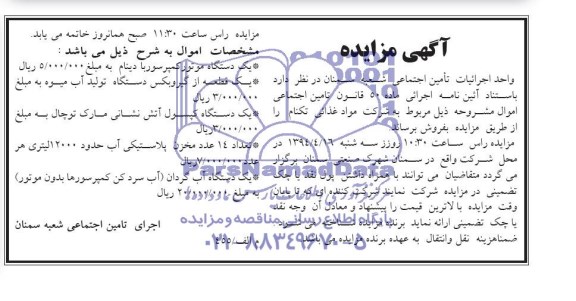 آگهی مزایده
واحد اجرائیات تأمین اجتماعی شعبه سمنان در نظر دارد
باستناد آئین نامه اجرائی ماده ۵۰ قانون تامین اجتماعی
اموال مشروحه ذیل مربوط به شرکت مواد غذائی تکنام را
از طریق مزایده بفروش برساند
مزایده راس ساعت ۱۰:۳۰ روز سه شنبه ۱۳۹۴/۴/۱۶ در
محل شرکت واقع در سمنان شهرک صنعتی سمنان برگزار
می گردد متقاضیان می توانند با همراه داشتن پول نقد یا چک
تضمینی در مزایده شرکت نمایند شرکت کننده ای که تا پایان
وقت مزایده بالاترین قیمت را پیشنهاد و معادل آن وجه نقد
یا چک تضمینی ارائه نماید برنده مزایده شناخته می شود.
ضمنا هزینه نقل وانتقال به عهده برنده مزایده می باشد.
مزایده راس ساعت ۱۱:۳۰ صبح همانروز خاتمه می یابد.
مشخصات اموال به شرح ذیل می باشد :
*یک دستگاه موتور کمپرسور با دینام به مبلغ ۵/۰۰۰/۰۰۰ ریال
*یک قطعه از گیربکس دستگاه تولید آب میوه به مبلغ
۳/۰۰۰/۰۰۰ ریال
*یک دستگاه کپسول آتش نشانی مارک توچال به مبلغ
۳/۰۰۰/۰۰۰ ریال
*تعداد ۱۴ عدد مخزن پلاستیکی آب حدود ۱۲۰۰۰ لیتری هر
عدد ۷/۰۰۰/۰۰۰ ریال
*یک دستگاه آب گردان (آب سرد کن کمپرسورها بدون موتور)
به مبلغ ۲۰/۰۰۰/۰۰۰ ریال
اجرای تامین اجتماعی شعبه سمنان
ParsNamadData
پایگاه اطلاع رسانی مناقصه و مزایده
۰۲۱-۸۸۳۴۹۶۷۰-۵